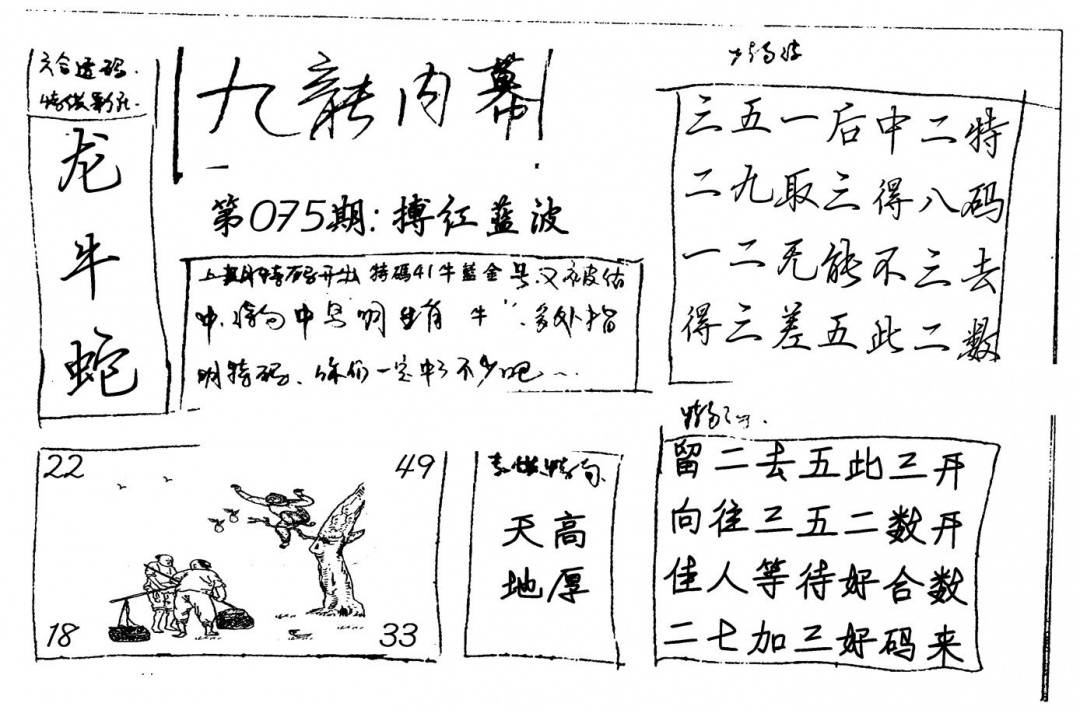 六合透码.
龙
牛
蛇
九龍内幕
第075期:搏红蓝波
上期特码开出 特碼41牛藍金号.又被估
中.特句中号明生肖 牛".多处指
明特码.你们一定中了不少吧
三五一后中二特
二九取三得八码
一二无能不三去
得三差五此二数
22
49
18
33
天高
地厚
留二去五此三开
向往三五二数开
佳人等待好合数
二七加三好码来